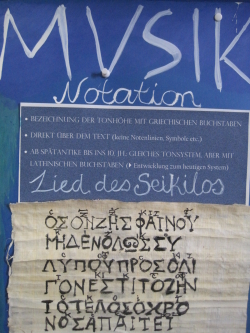 MVSIK
Notation
• BEZEICHNUNG DER TONHÖHE MIT GRIECHISCHEN BUCHSTABEN
• DIREKT ÜBER DEM TEXT (keine Notenlinien, Symbole etc.)
• AB SPÄTANTIKE BIS INS 10. JH. GLEICHES TONSYSTEM, ABER MIT
LATEINISCHEN BUCHSTABEN (▸ Entwicklung zum heutigen System)
Lied des Seikilos
ΟΣΟΝΖΗΣΦΑΙΝΟΥ
ΜΗΔΕΝΟΛΩΣΣΥ
ΛΥΠΟΥΠΡΟΣΟΛΙ
ΓΟΝΕΣΤΙΤΟΖΗΝ
ΤΟΤΕΛΟΣΟΧΡΟ
ΝΟΣΑΠΑΙΤΕΙ